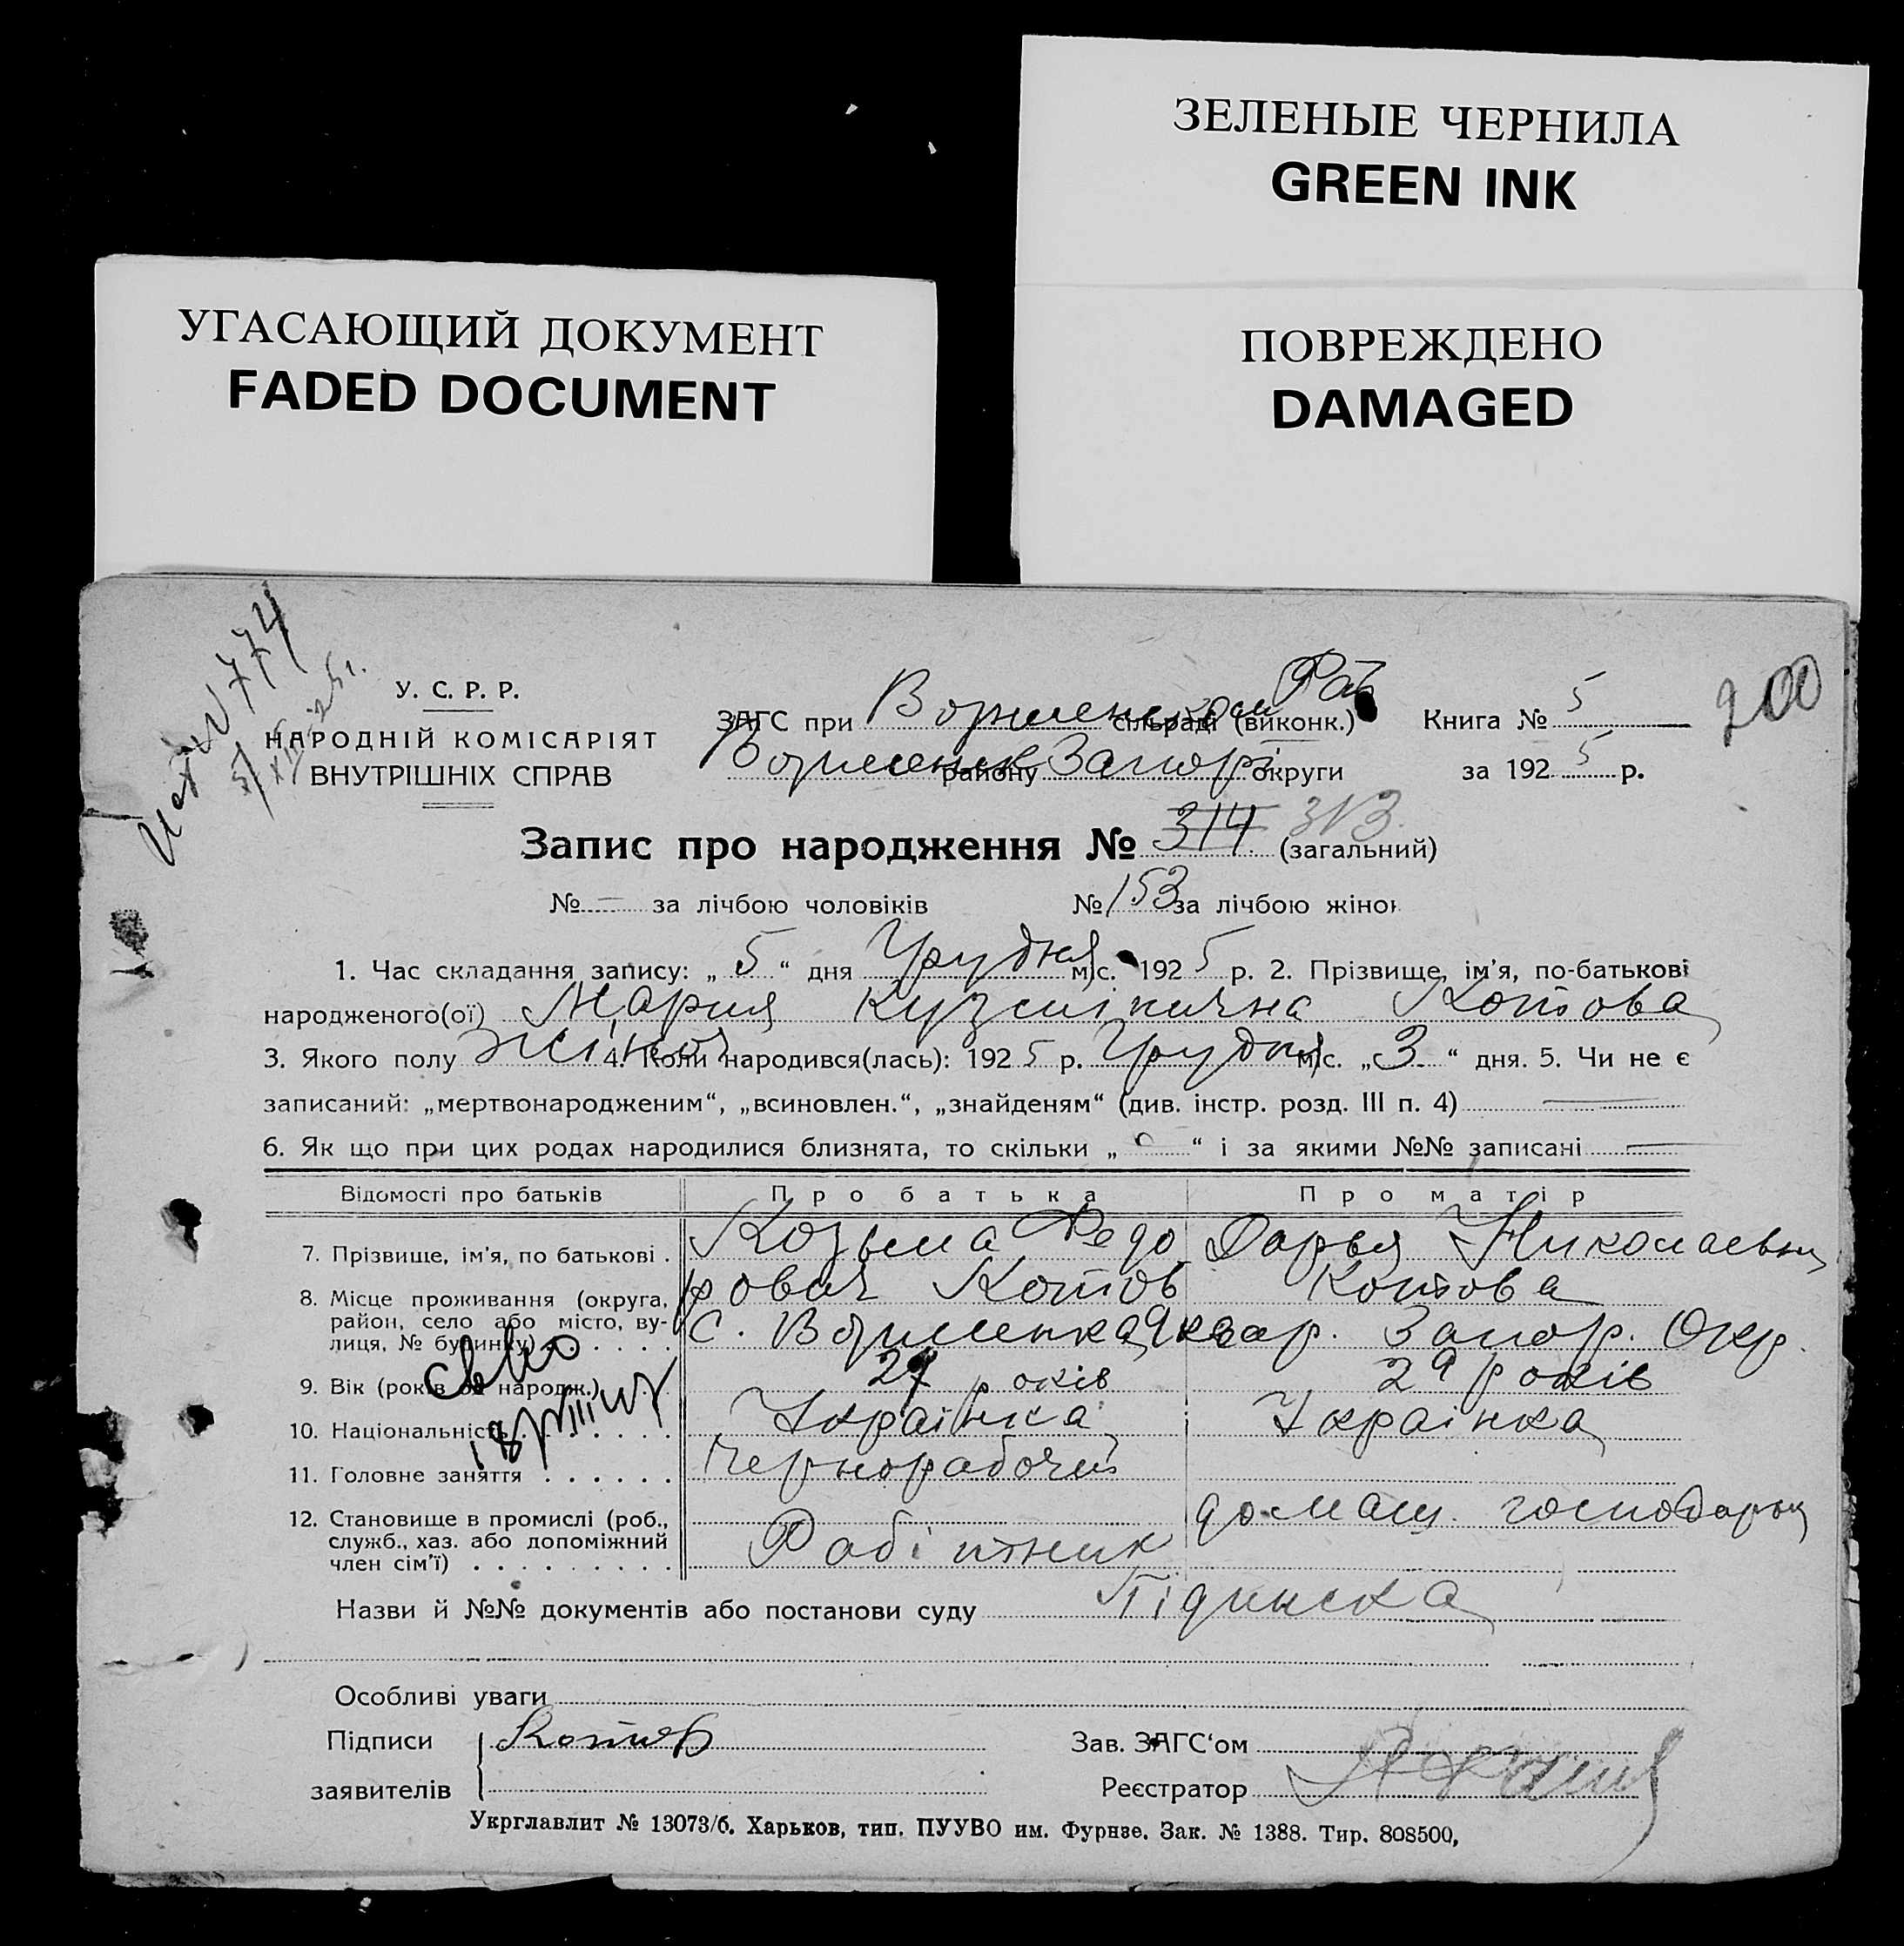 ЗЕЛЕНЫЕ ЧЕРНИЛА
GREEN INK
УГАСАЮЩИЙ ДОКУМЕНТ
FADED DOCUMENT
ПОВРЕЖДЕНО
DAMAGED
N 774
200
У. С. Р. Р.
НАРОДНІЙ КОМІСАРІЯТ
ВНУТРІШНІХ СПРАВ
ЗАГС при сільраді (виконк.) Книга № 5
району Запоріз округи за 192 5 р.
Запис про народження № 314 313 (загальний)
№ — за лічбою чоловіків № 153 за лічбою жінок
1. Час складання запису: „ 5 “ дня Грудня міс. 192 5 р. 2. Прізвище, ім'я, по-батькові
народженого(ої) Мария Кузмінична Котова
3. Якого полу Жіноч 4. Коли народився(лась): 192 5 р. Грудня міс. „ 3 “ дня. 5. Чи не є
записаний: „мертвонародженим“, „всиновлен.“, „знайденям“ (див. інстр. розд. III п. 4) —
6. Як що при цих родах народилися близнята, то скільки „ “ і за якими №№ записані —
Відомості про батьків Про батька Про матір
7. Прізвище, ім'я, по батькові . Козьма Федо Дарья Николаевна
рович Котов Котова
8. Місце проживання (округа, район, село або місто, вулиця, № будинку) с. Запор. Окр.
9. Вік (років від народж.) 29 років 29 років
10. Національність Українка Українка
11. Головне заняття Чернорабочий
12. Становище в промислі (роб., служб., хаз. або допоміжний член сім'ї) Робітник домаш. господарка
Назви й №№ документів або постанови суду
Особливі уваги
Підписи Котов Зав. ЗАГС'ом
заявителів Реєстратор
Укрглавлит № 13073/б. Харьков, тип. ПУУВО им. Фрунзе. Зак. № 1388. Тир. 808500,